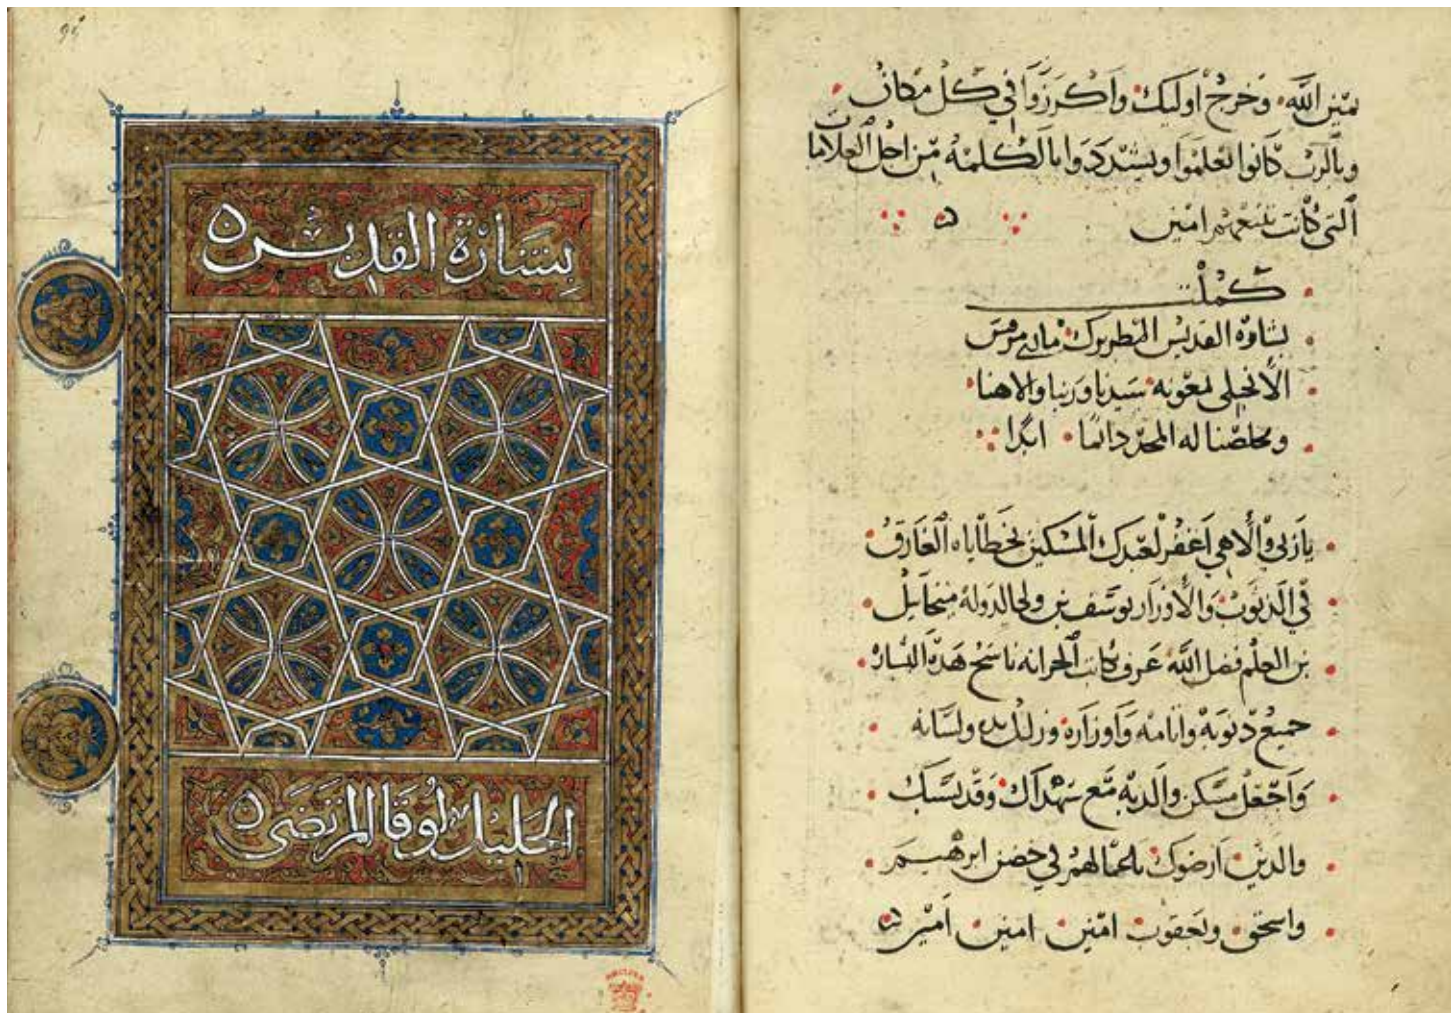 يمين الله وخرج اوليك واكرزوا في كل مكان
وبالرب كانوا من اجل العلامات
التي كانت تتبعهم امين
كملت
بشارة القديس البطريرك ماري مرقس
الانجيلي بمعونة سيدنا وربنا والاهنا
ومخلصنا له المجد دائما ابدا
ياربي والاهي اغفر لعبدك المسكين بخطاياه الغارق
في الذنوب والاوزار يوسف بن ولي الدوله ميخايل
بن العلم فضل الله عرف كاتب الخزانه ناسخ هذه البشاره
جميع ذنوبه واثامه واوزاره وزلل يده ولسانه
واجعل مسكن والديه مع شهداك وقديسيك
والذين ارضوك باعمالهم في حضن ابرهيم
واسحق ويعقوب امين امين امين
بشارة القديس
الجليل لوقا المرتضى